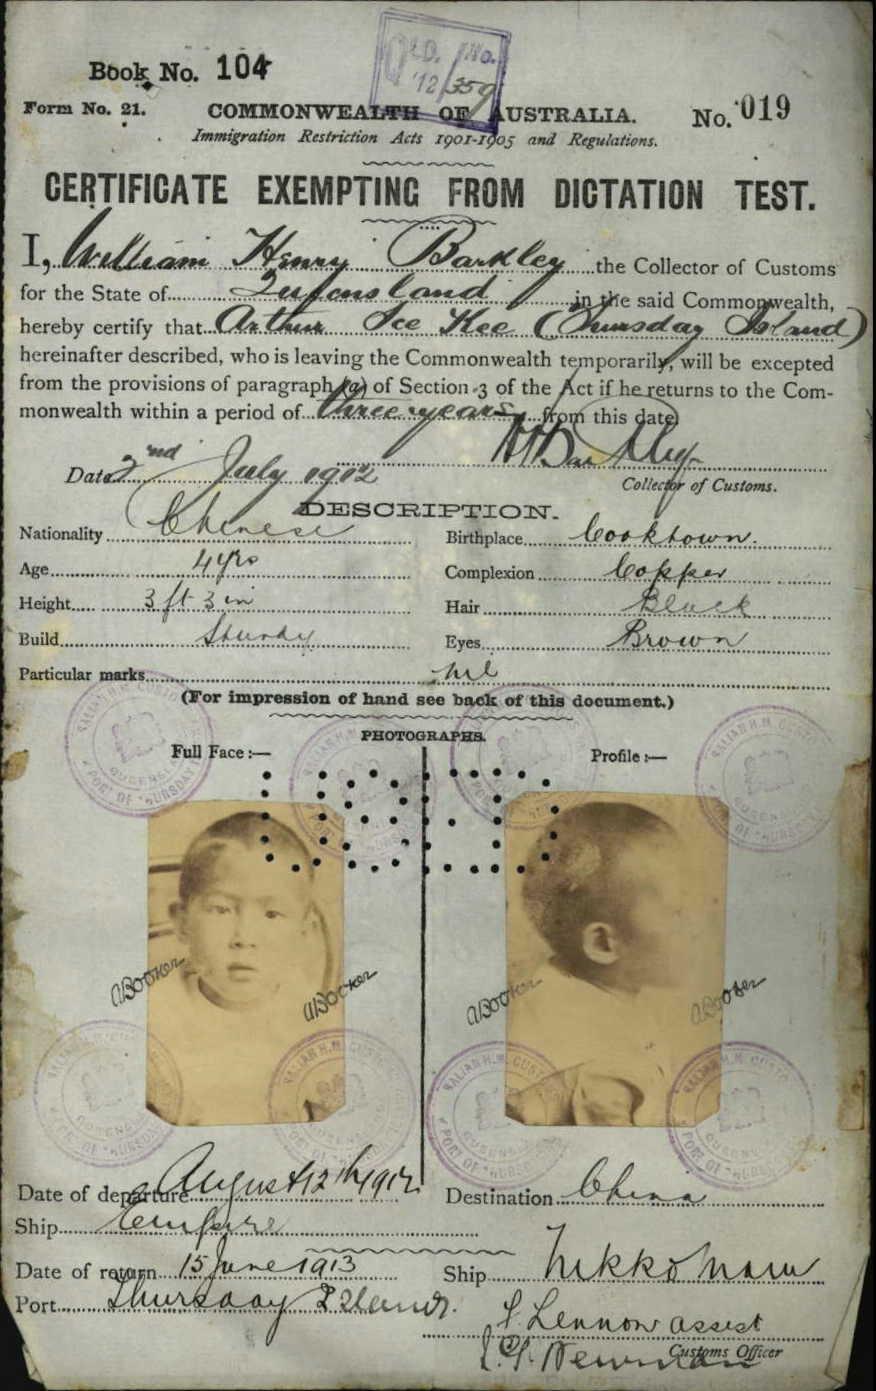 QLD. No.
'12/359
Book No. 104
Form No. 21. COMMONWEALTH OF AUSTRALIA. No. 019
Immigration Restriction Acts 1901-1905 and Regulations.
CERTIFICATE EXEMPTING FROM DICTATION TEST.
I, William Henry Barkley the Collector of Customs
for the State of Queensland in the said Commonwealth,
hereby certify that Arthur See Kee (Thursday Island)
hereinafter described, who is leaving the Commonwealth temporarily, will be excepted
from the provisions of paragraph (a) of Section 3 of the Act if he returns to the Com-
monwealth within a period of three years from this date
WHBarkley
Date 2nd July 1912 Collector of Customs.
DESCRIPTION.
Nationality Chinese Birthplace Cooktown.
Age 4 yrs Complexion Copper
Height 3 ft 3 in Hair Black
Build Sturdy Eyes Brown
Particular marks nil
(For impression of hand see back of this document.)
PHOTOGRAPHS.
Full Face :— Profile :—
ABooker ABooker ABooker ABooker
Date of departure August 12th 1912 Destination China
Ship Empire
Date of return 15 June 1913 Ship Nikko Maru
Port Thursday Island.
Lennon assist
Newman
Customs Officer